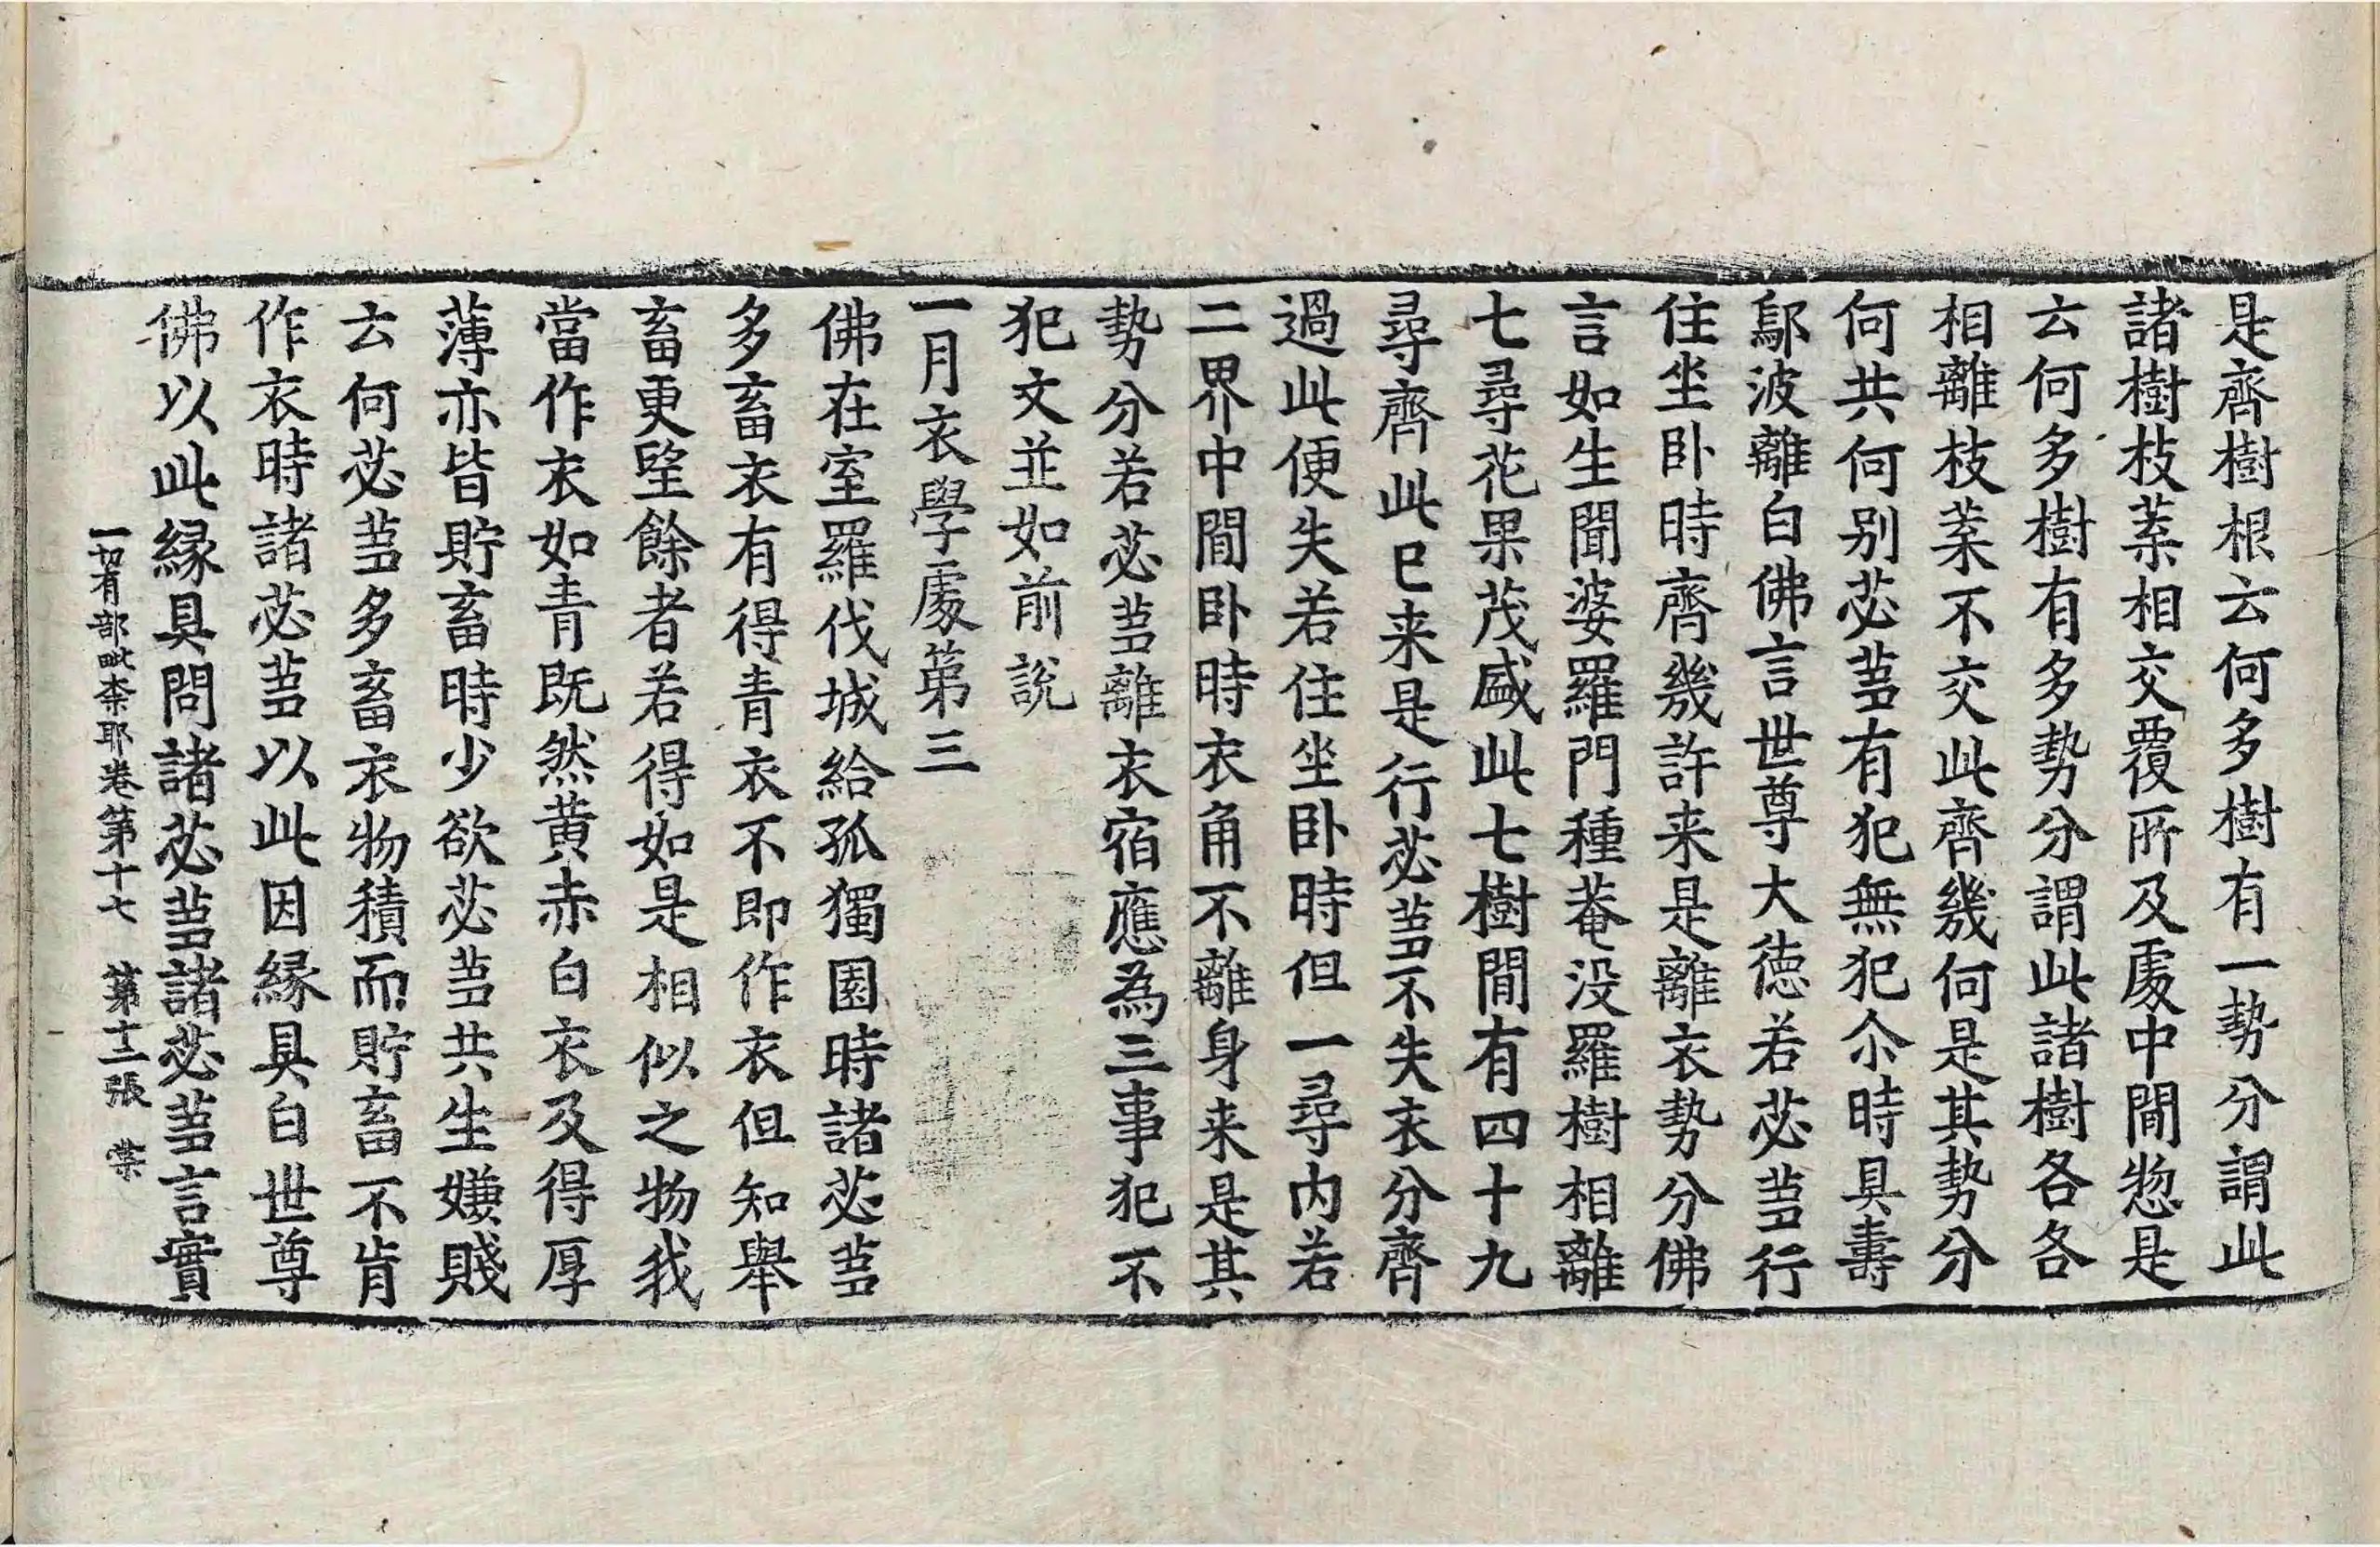 是齊樹根云何多樹有一勢分謂此
諸樹枝葉相交覆所及處中間惣是
云何多樹有多勢分謂此諸樹各各
相離枝葉不交此齊幾何是其勢分
何共何別苾蒭有犯無犯尒時具壽
鄔波離白佛言世尊大德若苾蒭行
住坐卧時齊幾許来是離衣勢分佛
言如生聞婆羅門種菴没羅樹相離
七尋花果茂盛此七樹間有四十九
尋齊此已来是行苾蒭不失衣分齊
過此便失若住坐卧時但一尋内若
二界中間卧時衣角不離身来是其
勢分若苾蒭離衣宿應為三事犯不
犯文並如前說
一月衣學處第三
佛在室羅伐城給孤獨園時諸苾蒭
多畜衣有得青衣不即作衣但知舉
畜更望餘者若得如是相似之物我
當作衣如青既然黄赤白衣及得厚
薄亦皆貯畜時少欲苾蒭共生嫌賤
云何苾蒭多畜衣物積而貯畜不肯
作衣時諸苾蒭以此因縁具白世尊
佛以此縁具問諸苾蒭諸苾蒭言實
一切有部毗柰耶卷第十七 第十二張 棠